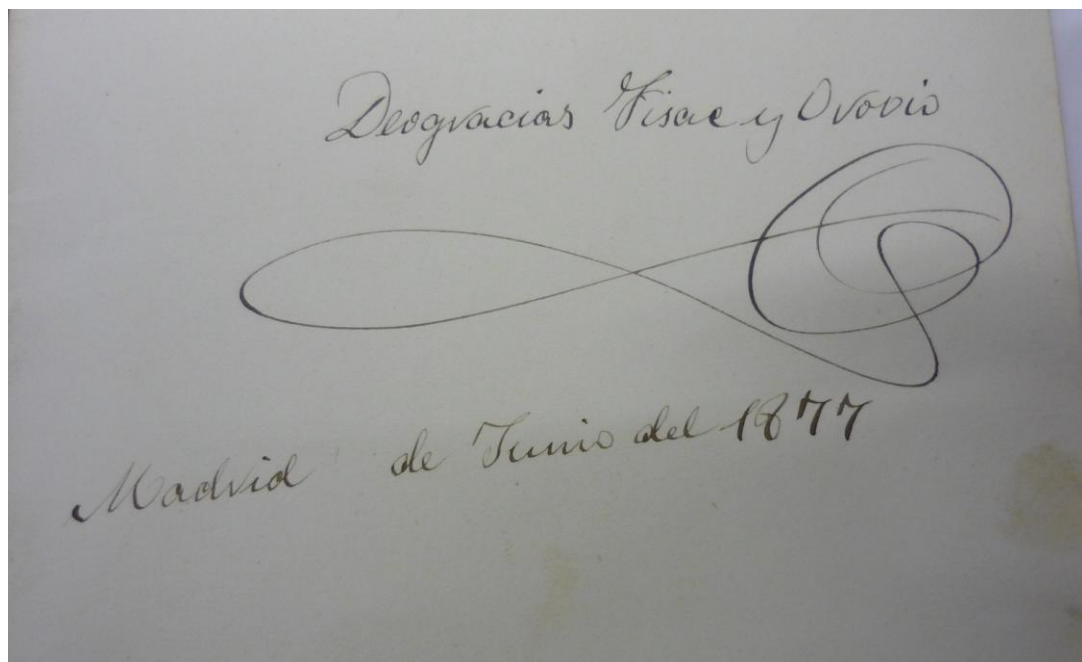 Deogracias Visac y Orovio
Madrid de Junio del 1877